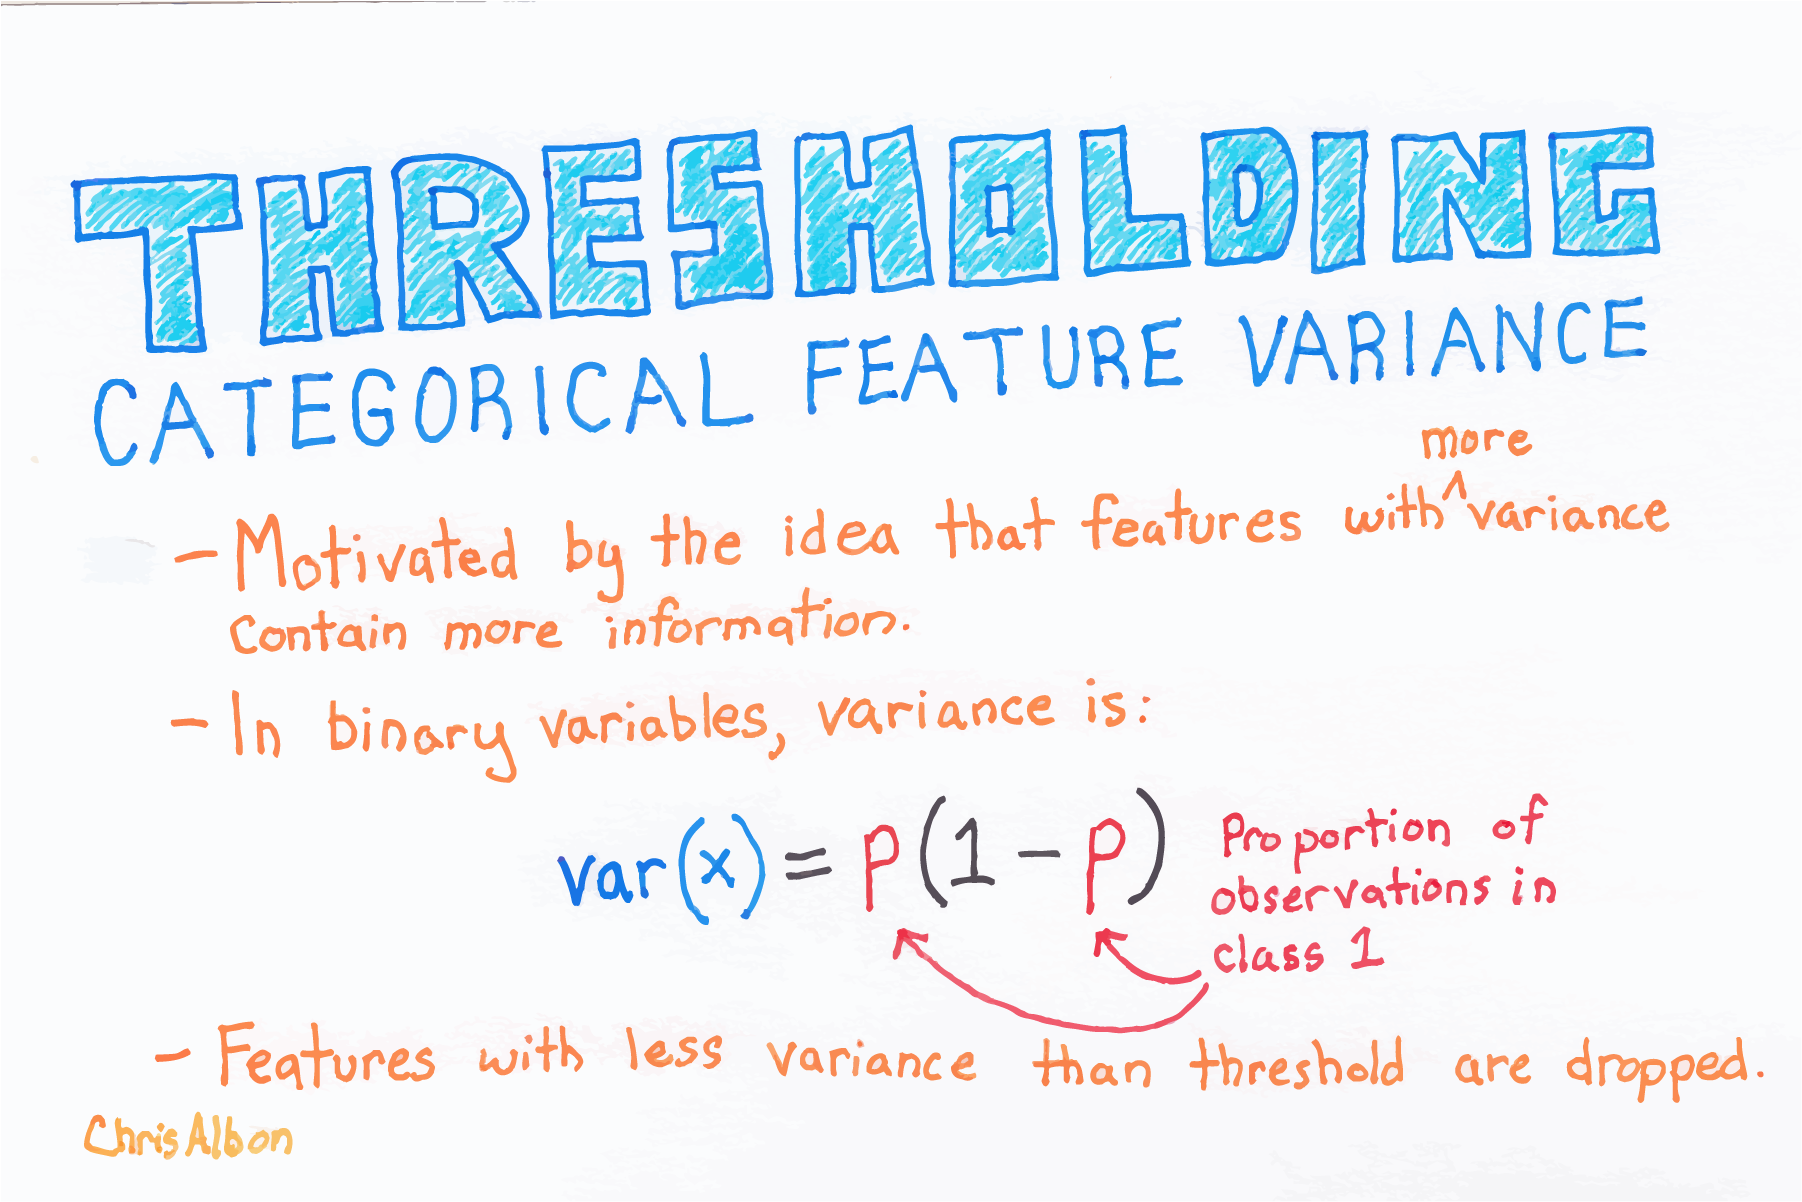 THRESHOLDING
CATEGORICAL FEATURE VARIANCE
- Motivated by the idea that features with ^more variance
contain more information.
- In binary variables, variance is:
var(x) = p(1 - p)
Proportion of
observations in
class 1
- Features with less variance than threshold are dropped.
Chris Albon